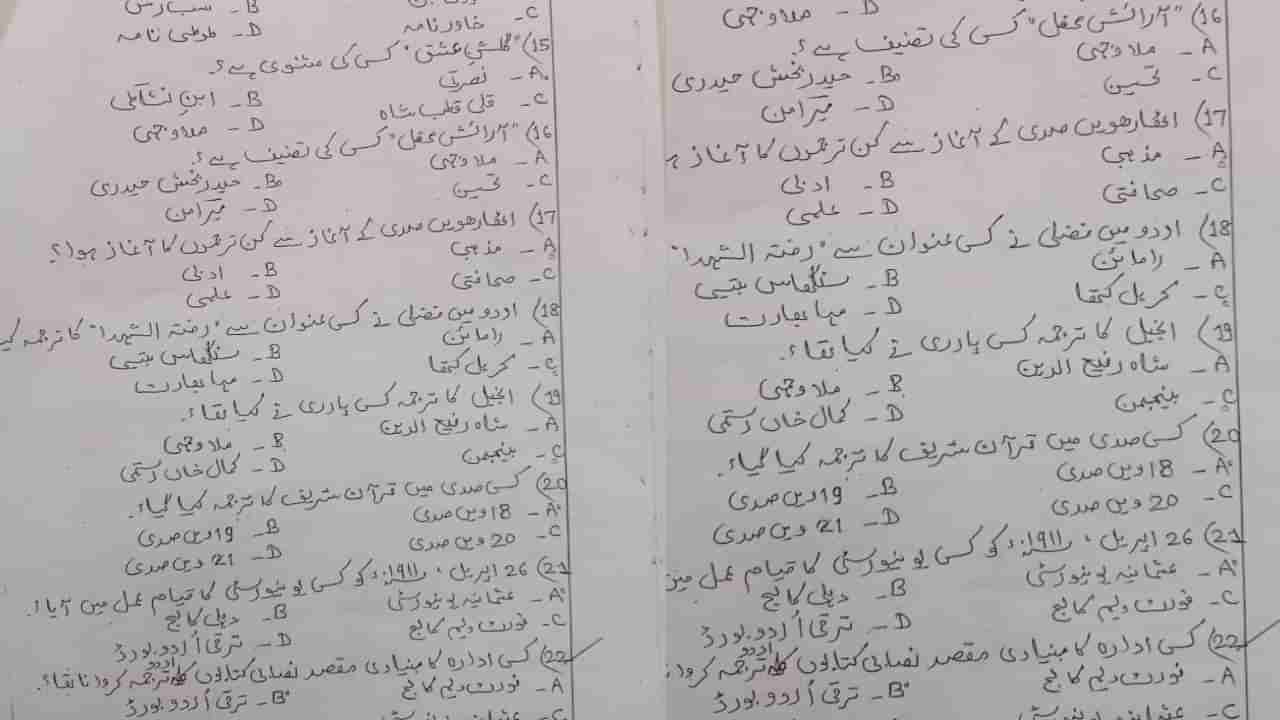 B- سب رس
C- خاور نامہ
D- طوطی نامہ
15) "گلشنِ عشق" کس کی مثنوی ہے؟
A- نصرتی
B- ابن نشاطی
C- قلی قطب شاہ
D- ملا وجہی
16) "آرائش محفل" کس کی تصنیف ہے؟
A- ملا وجہی
B- حیدر بخش حیدری
C- تحسین
D- میر امن
17) اٹھارھویں صدی کے آغاز سے کن ترجموں کا آغاز ہوا؟
A- مذہبی
B- ادبی
C- صحافتی
D- علمی
18) اردو میں فضلی نے کس عنوان سے "روضتہ الشہدا" کا ترجمہ کیا
A- رامائن
B- سنگھاسن بتیسی
C- کربل کتھا
D- مہابھارت
19) انجیل کا ترجمہ کس پادری نے کیا تھا؟
A- شاہ رفیع الدین
B- ملا وجہی
C- بینجمن
D- کمال خاں رستمی
20) کس صدی میں قرآن شریف کا ترجمہ کیا گیا؟
A- 18 ویں صدی
B- 19 ویں صدی
C- 20 ویں صدی
D- 21 ویں صدی
21) 26 اپریل، ۱۹۱۱ء کو کس یونیورسٹی کا قیام عمل میں آیا؟
A- عثمانیہ یونیورسٹی
B- دہلی کالج
C- فورٹ ولیم کالج
D- ترقی اُردو بورڈ
22) کس ادارہ کا بنیادی مقصد نصابی کتابوں کا اردو ترجمہ کروانا تھا؟
A- فورٹ ولیم کالج
B- ترقی اُردو بورڈ
D- ملا وجہی
16) "آرائش محفل" کس کی تصنیف ہے؟
A- ملا وجہی
B- حیدر بخش حیدری
C- تحسین
D- میر امن
17) اٹھارھویں صدی کے آغاز سے کن ترجموں کا آغاز ہ
A- مذہبی
B- ادبی
C- صحافتی
D- علمی
18) اردو میں فضلی نے کس عنوان سے "روضتہ الشہدا"
A- رامائن
B- سنگھاسن بتیسی
C- کربل کتھا
D- مہابھارت
19) انجیل کا ترجمہ کس پادری نے کیا تھا؟
A- شاہ رفیع الدین
B- ملا وجہی
C- بینجمن
D- کمال خاں رستمی
20) کس صدی میں قرآن شریف کا ترجمہ کیا گیا؟
A- 18 ویں صدی
B- 19 ویں صدی
C- 20 ویں صدی
D- 21 ویں صدی
21) 26 اپریل، ۱۹۱۱ء کو کس یونیورسٹی کا قیام عمل میں
A- عثمانیہ یونیورسٹی
B- دہلی کالج
C- فورٹ ولیم کالج
D- ترقی اُردو بورڈ
22) کس ادارہ کا بنیادی مقصد نصابی کتابوں کا اردو ترجمہ کروانا
A- فورٹ ولیم کالج
B- ترقی اُردو بورڈ